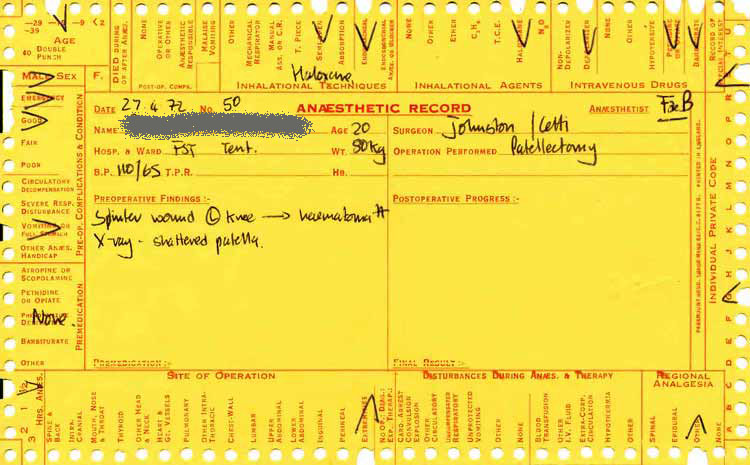 -29 -19 -9 <2
-39
AGE
40 DOUBLE
PUNCH
DIED DURING
OF AFTER ANÆS.
NONE
OPERATIVE
OR OTHER
ANÆSTHETIC
RESPONSIBLE
MALAISE
VOMITING
OTHER
POST-OP. COMPS.
MECHANICAL
RESPIRATOR
MANUAL
ASS. OR C.R.
T. PIECE
ABSORPTION
OTHER
ETHER
T.C.E.
N₂O
NON-
DEPOLARIZER
NONE
OTHER
HYPOTENSIVE
Haloxane
INHALATIONAL TECHNIQUES
INHALATIONAL AGENTS
INTRAVENOUS DRUGS
MALE SEX F.
EMERGENCY
GOOD
FAIR
POOR
CIRCULATORY
DECOMPENSATION
SEVERE RESP.
DISTURBANCE
VOMITING OR
FULL STOMACH
OTHER ANÆS.
HANDICAP
PRE-OP. COMPLICATIONS & CONDITION
ATROPINE OR
SCOPOLAMINE
PETHIDINE
OR OPIATE
None
BARBITURATE
OTHER
PREMEDICATION
DATE 27.4.72 NO. 50
ANÆSTHETIC RECORD
ANÆSTHETIST FxB
NAME
AGE 20
SURGEON Johnston / Cetti
HOSP. & WARD FST Tent.
WT. 80kg
OPERATION PERFORMED Patellectomy
B.P. 110/65 T.P.R.
HB.
PREOPERATIVE FINDINGS :-
POSTOPERATIVE PROGRESS :-
Splinter wound Ⓛ Knee → haematoma #
X-ray - shattered patella.
PREMEDICATION :-
FINAL RESULT :-
PRINTED IN ENGLAND.
INDIVIDUAL PRIVATE CODE
SITE OF OPERATION
DISTURBANCES DURING ANÆS. & THERAPY
REGIONAL
ANALGESIA
HRS. ANÆS.
SPINE &
BACK
INTRA-
CRANIAL
MOUTH, NOSE
& THROAT
THYROID
OTHER HEAD
& NECK
HEART &
GT. VESSELS
PULMONARY
OTHER INTRA-
THORACIC
CHEST-WALL
LUMBAR
UPPER
ABDOMINAL
LOWER
ABDOMINAL
INGUINAL
PERINEAL
EXTREMITIES
NO OP., DIAG.,
EXP. THERAP.
CARD. ARREST
CONVULSION
EXPLOSION
OTHER
CIRCULATORY
UNPROVOKED
VOMITING
OTHER
NONE
BLOOD
TRANSFUSION
OTHER
I.V. FLUID
EXTRA-CORP.
CIRCULATION
HYPOTHERMIA
OTHER
NONE
SPINAL
EPIDURAL
OTHER
NONE